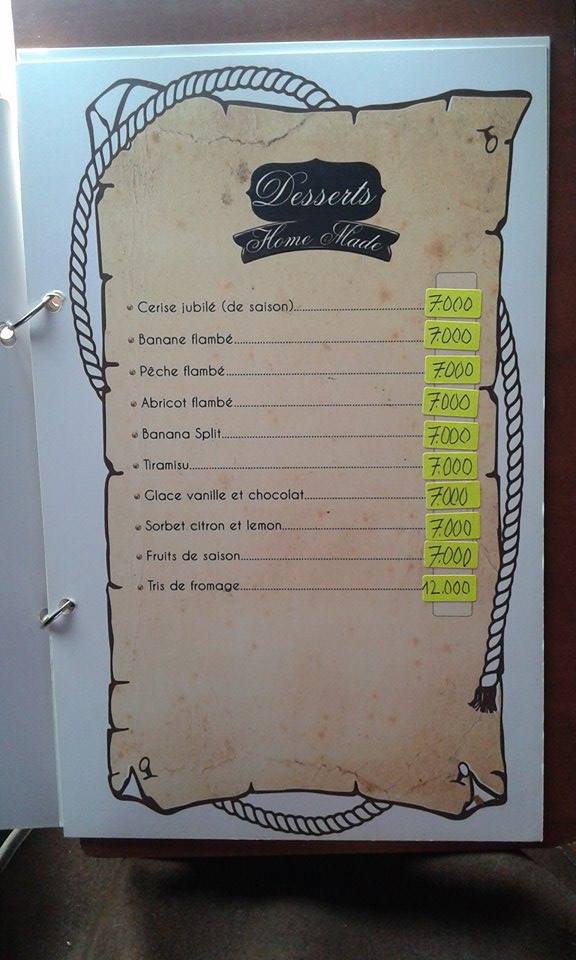 Desserts
Home Made
Cerise jubilé (de saison)........................................7.000
Banane flambé........................................7.000
Pêche flambé........................................7.000
Abricot flambé........................................7.000
Banana Split........................................7.000
Tiramisu........................................7.000
Glace vanille et chocolat........................................7.000
Sorbet citron et lemon........................................7.000
Fruits de saison........................................7.000
Tris de fromage........................................12.000